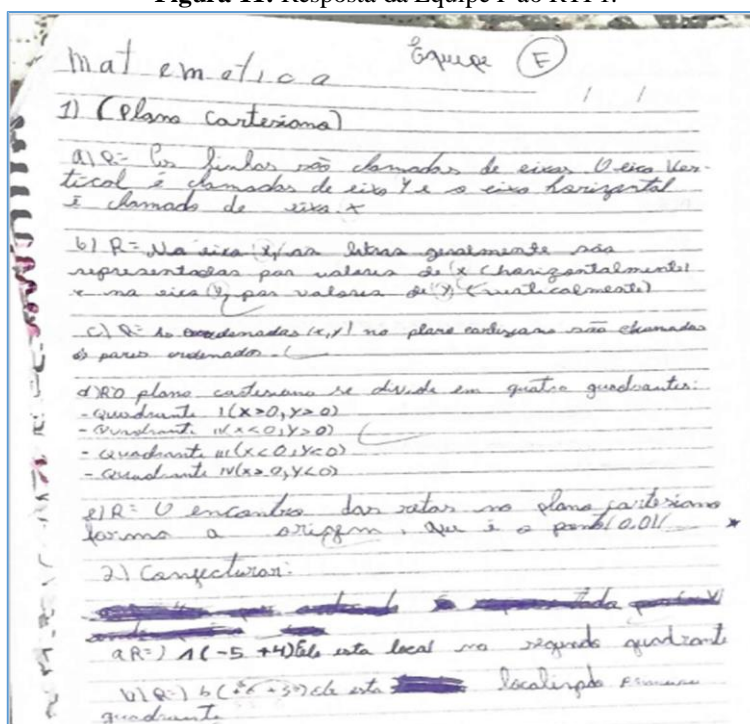 Figura 11: Resposta da Equipe F ao RTP1.
Matematica Equipe E
/ /
1) (Plano Cartesiano)
a) R= As linhas são chamadas de eixos. O eixo Ver-
tical é chamadas de eixo Y e o eixo horizontal
É chamado de eixo x
b) R= Na eixo (x) as letras geralmente são
representadas por valores de (x (horizontalmente)
e na eixo (y) por valores de (y) (verticalmente)
c) R= As coordenadas (x,y) no plano cartesiano são chamadas
pares ordenados.
d) R O plano cartesiano se divide em quatro quadrantes:
- Quadrante I (x>0, y>0)
- Quadrante (x<0, y>0)
- Quadrante III (x<0, y<0)
- Quadrante IV (x>0, y<0)
e) R= O encontro das retas no plano cartesiano
forma a origem, que é o (0,0)
2) Conjecturar:
a R=) A (-5 +4) Ele esta local no segundo quadrante
b) R=) b ele esta localizado
quadrante